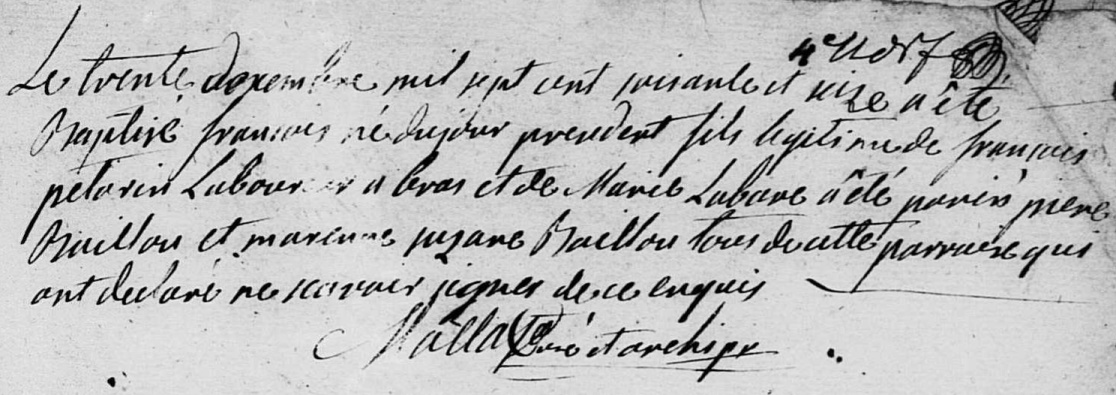 Le trente decembre mil sept cent soisante et seize a été
Baptisé francois né dujour precedent fils legitime de francois
pelorin Laboureur a bras et de Marie Labare a été parein piere
Baillou et mareinne suzane Baillou tous de cette parroisse qui
ont declaré ne scavoir signer de ce enquis
Curé et archipr